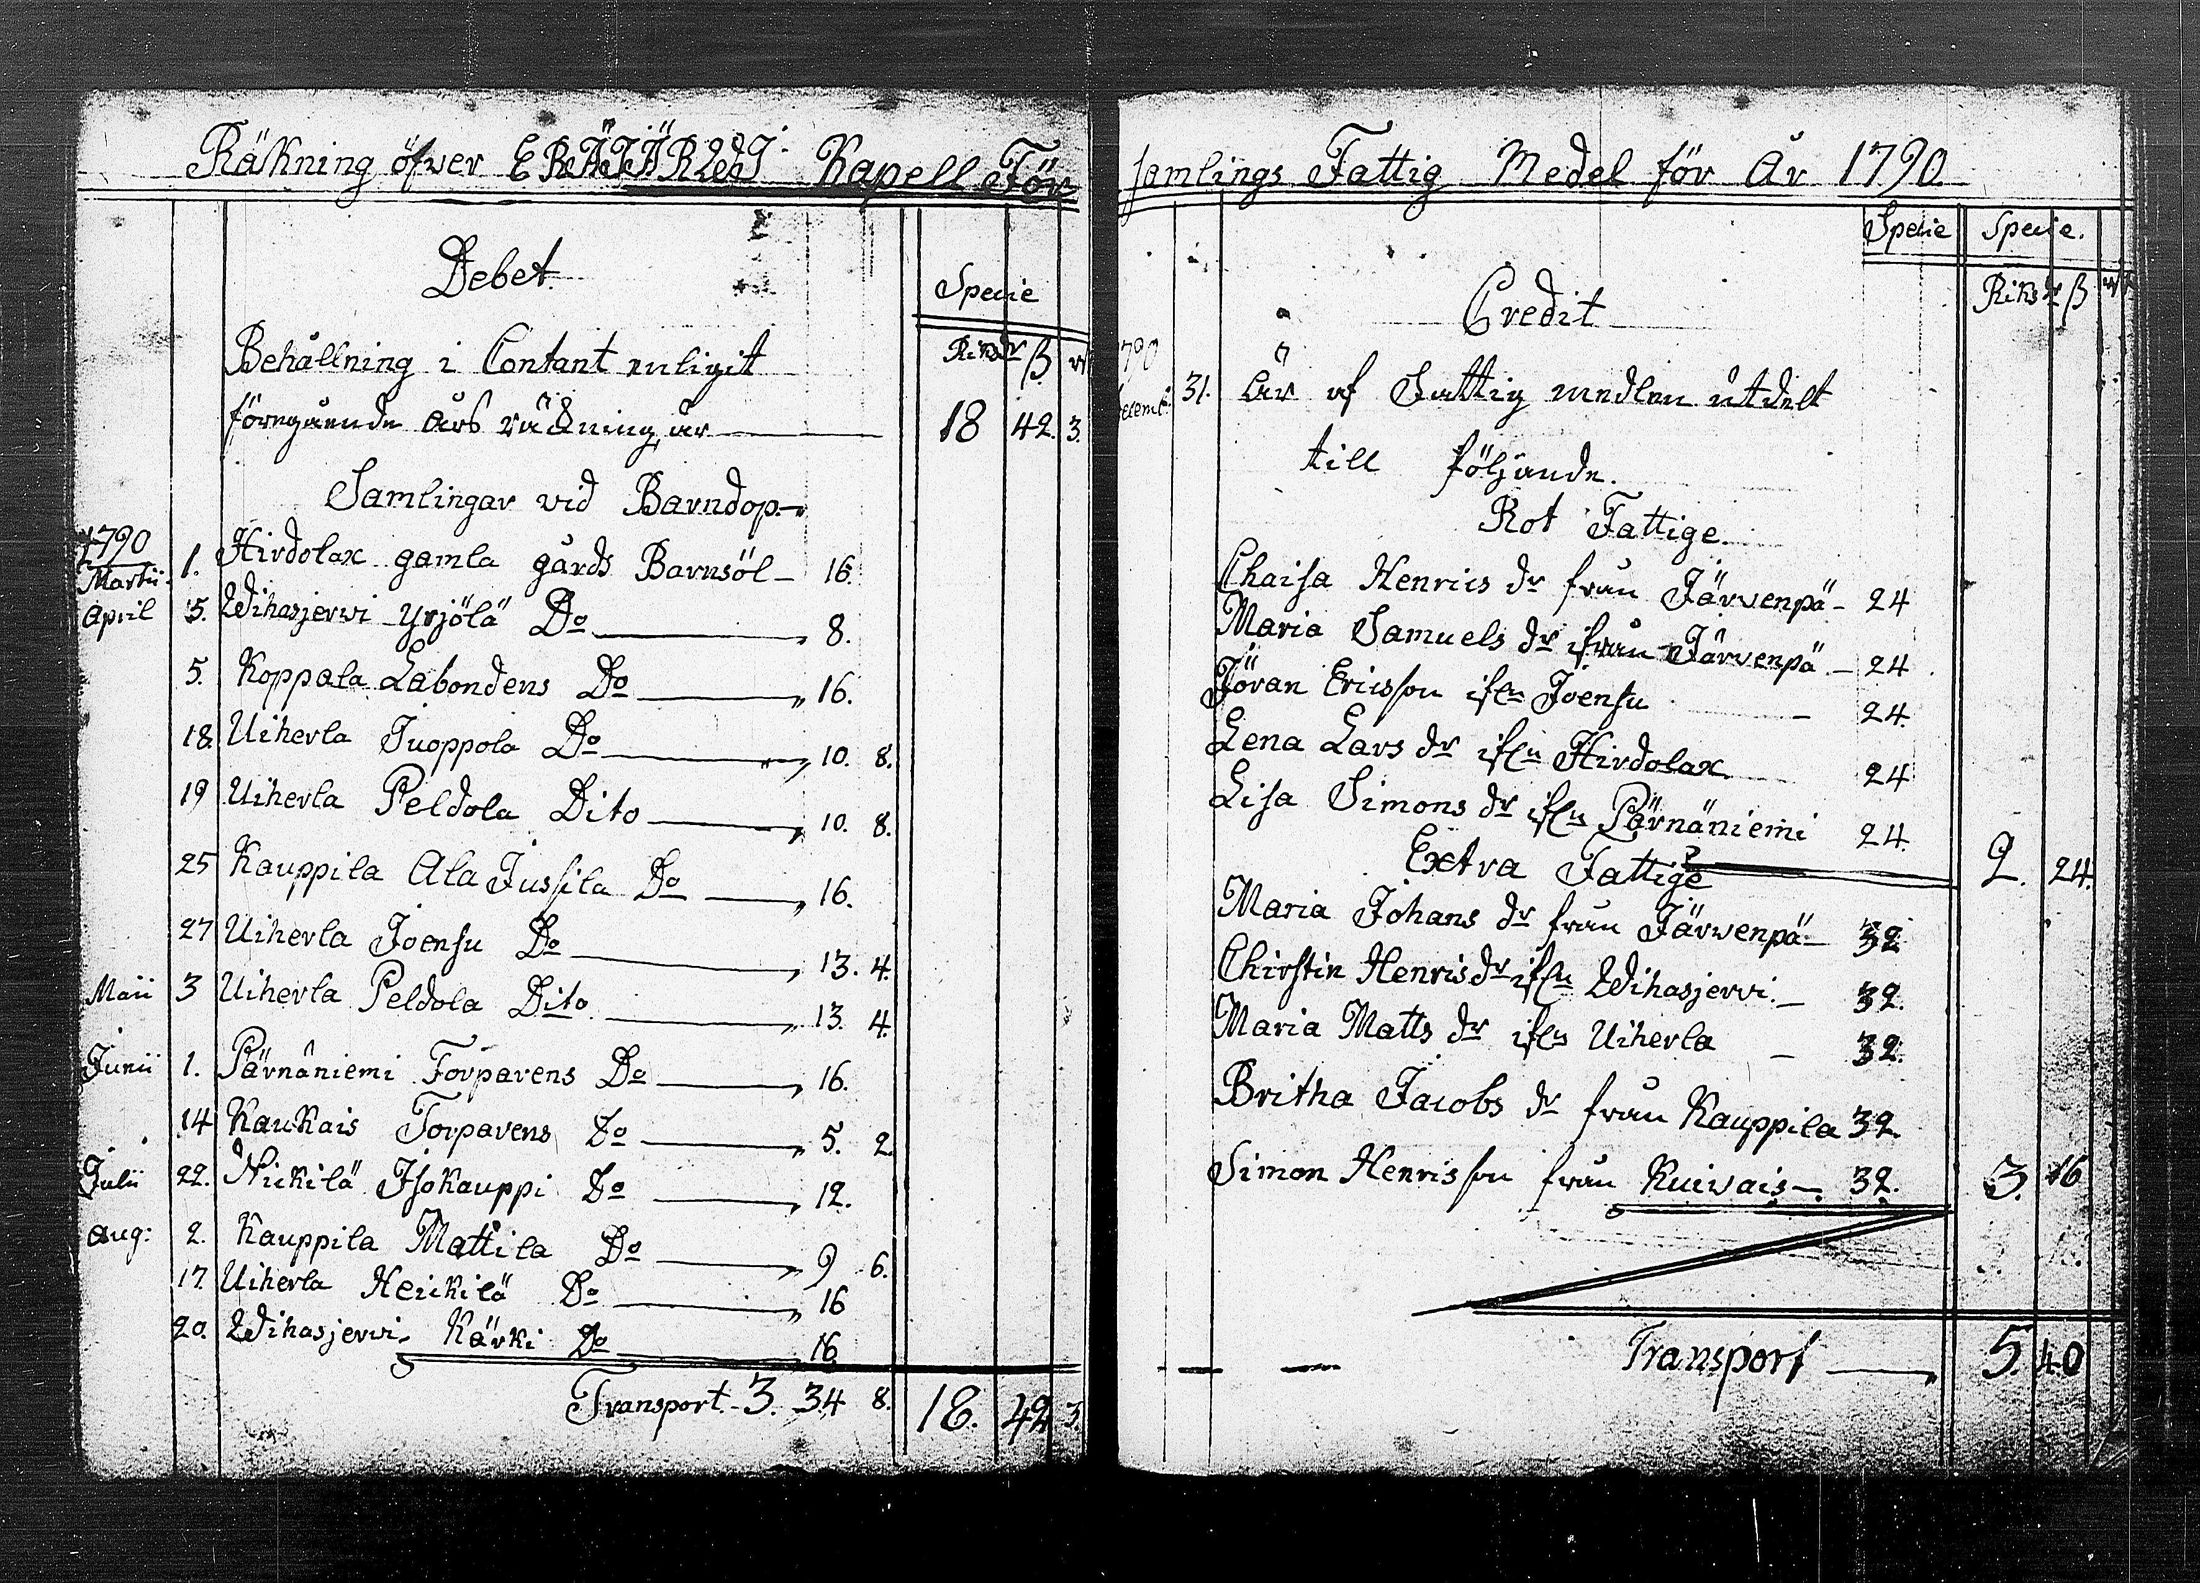 Räkning öfwer ERÄJÄRWI Kapell För
Debet
Specie
Riksdr ß
Behållning i Contant enligit
föregående års räkning är 18 42. 3.
Samlingar vid Barndop
1790
Martii 1. Hirdolax gamla gårds Barnsöl 16.
April 5. Wihasjerwi Yrjölä Do 8.
5. Koppala Labondens Do 16.
18. Uiherla Juoppola Do 10. 8.
19 Uiherla Peldola Dito 10. 8.
25 Kauppila Ala Jussila Do 16.
27 Uiherla Joensu Do 13. 4.
Maii 3 Uiherla Peldola Dito 13. 4.
Junii 1. Pärnäniemi Torparens Do 16.
14 Kaukais Torparens Do 5. 2.
Julii 22. Nickilä Isokauppi Do 12.
Aug: 2. Kauppila Mattila Do 9 6.
17. Uiherla Heickilä Do 16
20. Wihasjerwi Kärki Do 16
Transport 3. 34 8. 18. 42 3.
samlings Fattig Medel för År 1790
Specie Specie.
Riksdr ß
Credit
31. Är af Fattig medlen utdelt
till följande.
Rot Fattige.
Chaisa Henrics dr från Järvenpä 24
Maria Samuels dr ifrån Järvenpä 24
Jöran Ericsson ifrn Joensu 24.
Lena Lars dr ifrn Hirdolax 24
Lisa Simons dr ifrn Pärnäniemi 24. 2. 24.
Extra Fattige
Maria Johans dr från Järwenpä 32
Chirstin Henrisdr ifrn Wihasjerwi 32.
Maria Matts dr ifrn Uiherla 32.
Britha Jacobs dr från Kauppila 32.
Simon Henrisson från Kuivais 32. 3. 16
Transport 5. 40